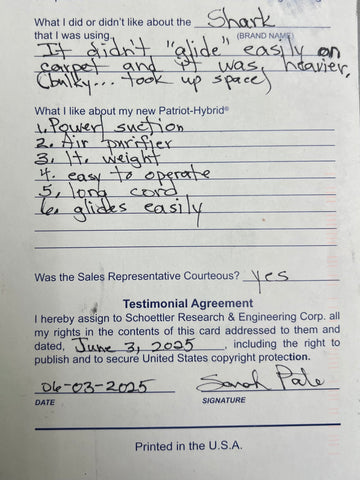 What I did or didn't like about the Shark
that I was using. (BRAND NAME)
It didn't "glide" easily on
carpet and it was heavier,
(bulky... took up space)
What I like about my new Patriot-Hybrid®
1. Power/suction
2. Air purifier
3. lt. weight
4. easy to operate
5. long cord
6. glides easily
Was the Sales Representative Courteous? yes
Testimonial Agreement
I hereby assign to Schoettler Research & Engineering Corp. all
my rights in the contents of this card addressed to them and
dated, June 3, 2025, including the right to
publish and to secure United States copyright protection.
06-03-2025 Sarah Pale
DATE SIGNATURE
Printed in the U.S.A.